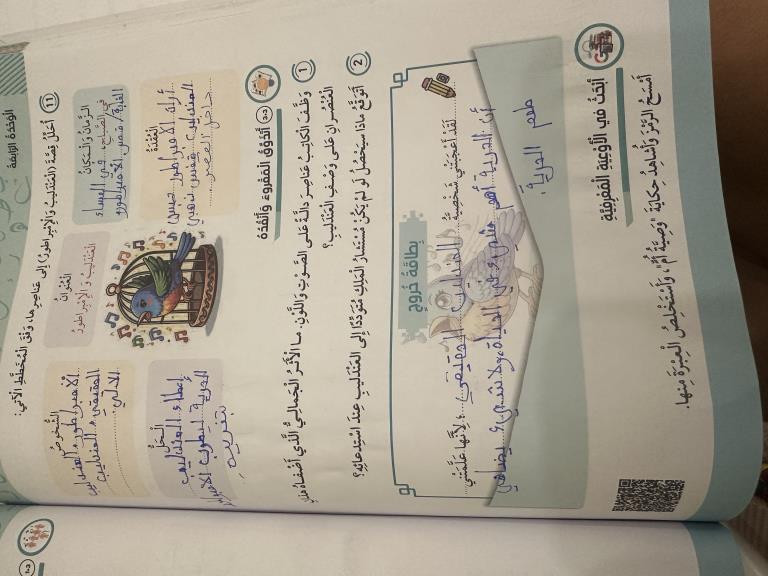 الوَحْدَةُ الرّابِعَةُ
11 أُحَلِّلُ قِصَّةَ (العَنْدَليبِ وَالإِمْبِراطورِ) إِلى عَناصِرِها، وَفْقَ المُخَطَّطِ الآتي:
العُنْوانُ
العَنْدَليبُ وَالإِمْبِراطورُ
الزَّمانُ وَالمَكانُ
في الصَّباح، في المساء
الغابة/ قصر الإمبراطور
الشُّخوصُ
الامبراطور، العندليب
الحقيقي، العندليب
الآلي
العُقْدَةُ
أراد الإمبراطور حبس
العندليب
داخل القصر
الحَلُّ
إعطاء العندليب
الحرية ليطرب الامبراطور
بتغريده
أَتَذَوَّقُ المَقْروءَ وَأَنْقُدُهُ
1 وَظَّفَ الكاتِبُ عَناصِرَ دالَّةً عَلى الصَّوْتِ وَاللَّوْنِ. ما الأَثَرُ الجَمالِيُّ الَّذي أَضْفاهُ هذانِ
العُنْصُرانِ عَلى وَصْفِ العَنْدَليبِ؟
2 أَتَوَقَّعُ ماذا سَيَحْصُلُ لَوْ لَمْ يَكُنْ مُسْتَشارُ المَلِكِ مُتَوَدِّدًا إِلى العَنْدَليبِ عِنْدَ اسْتِدْعائِهِ؟
بِطاقَةُ خُروجٍ
لَقَدْ أَعْجَبَتْني شَخْصِيَّةُ العندليب الحقيقي؛ لِأَنَّها عَلَّمَتْني
أن الحرية أهم شيء في الحياة، ولا شيء يضاهي
طعم الحرية.
أَبْحَثُ في الأَوْعِيَةِ المَعْرِفِيَّةِ
أَمْسَحُ الرَّمْزَ وَأُشاهِدُ حِكايَةَ "وَصِيَّةُ أُمٍّ"، وَأَسْتَخْلِصُ العِبْرَةَ مِنْها.